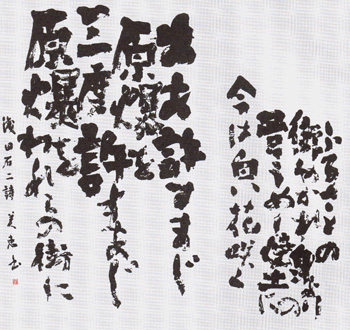 ふるさとの
街やかれ身よりの
骨うめし焼土に
今は白い花咲く
ああ許すまじ
原爆を
三度許すまじ
原爆をわれらの街に
浅田石二詩